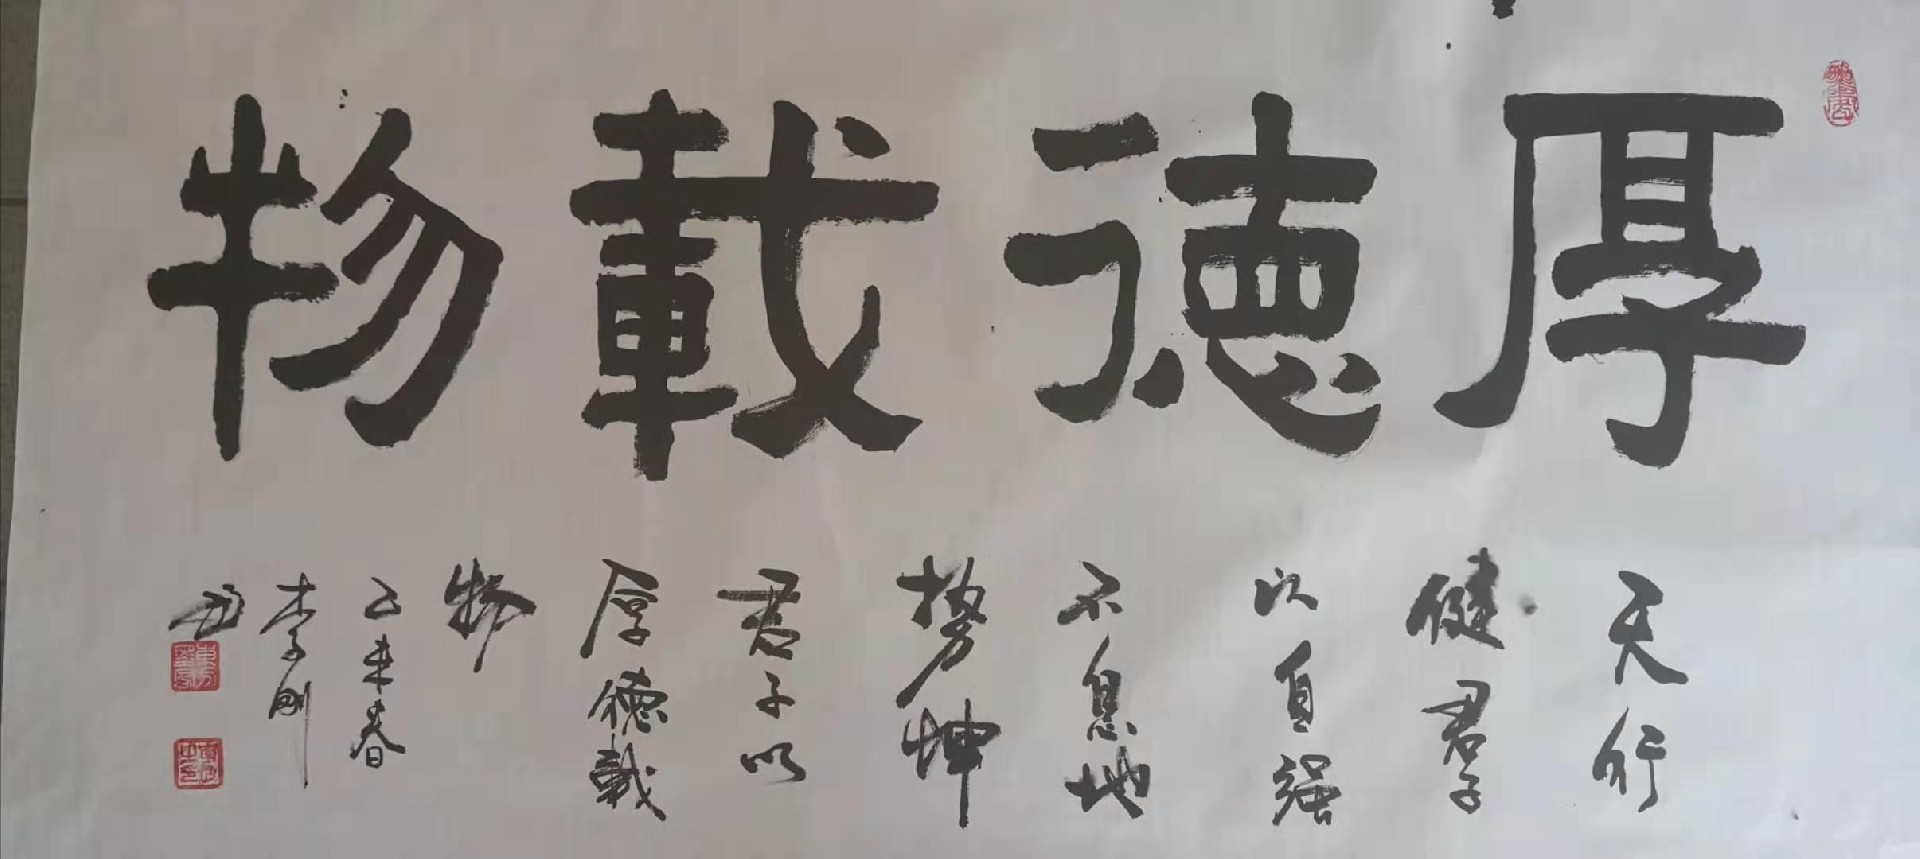 厚德載物
天行
健君子
以自强
不息地
势坤
君子以
厚德載
物
乙未春
李刚